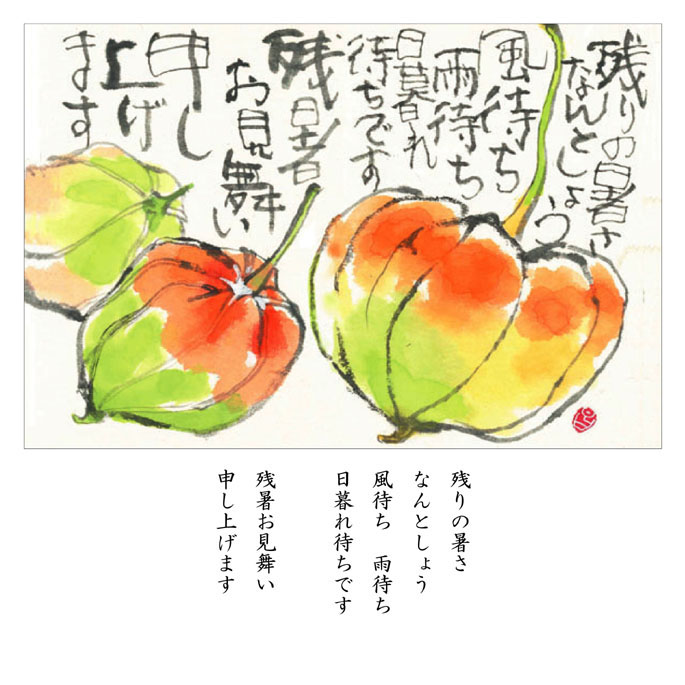 残りの暑さ
なんとしょう
風待ち
雨待ち
日暮れ
待ちです
残暑
お見舞い
申し
上げ
ます
残りの暑さ
なんとしょう
風待ち　雨待ち
日暮れ待ちです
残暑お見舞い
申し上げます